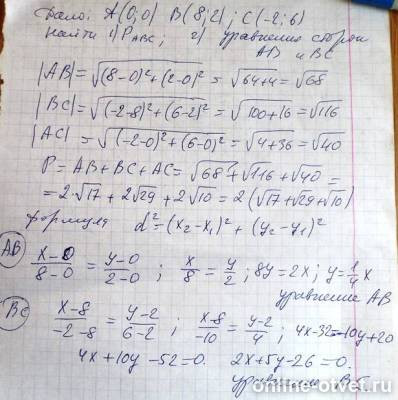 Дано: A(0;0) B(8;2); C(-2;6)
Найти 1) P_ABC; 2) уравнения сторон
AB и BC
|AB| = √((8-0)²+(2-0)²) = √(64+4) = √68
|BC| = √((-2-8)²+(6-2)²) = √(100+16) = √116
|AC| = √((-2-0)²+(6-0)²) = √(4+36) = √40
P = AB+BC+AC = √68+√116+√40 =
= 2·√17 + 2√29 + 2√10 = 2(√17+√29+√10)
формула d² = (x₂-x₁)² + (y₂-y₁)²
AB (x-0)/(8-0) = (y-0)/(2-0); x/8 = y/2; 8y = 2x; y = 1/4 x
уравнение AB
BC (x-8)/(-2-8) = (y-2)/(6-2); (x-8)/-10 = (y-2)/4; 4x-32=-10y+20
4x+10y-52=0. 2x+5y-26=0.
уравнение BC
online-otvet.ru